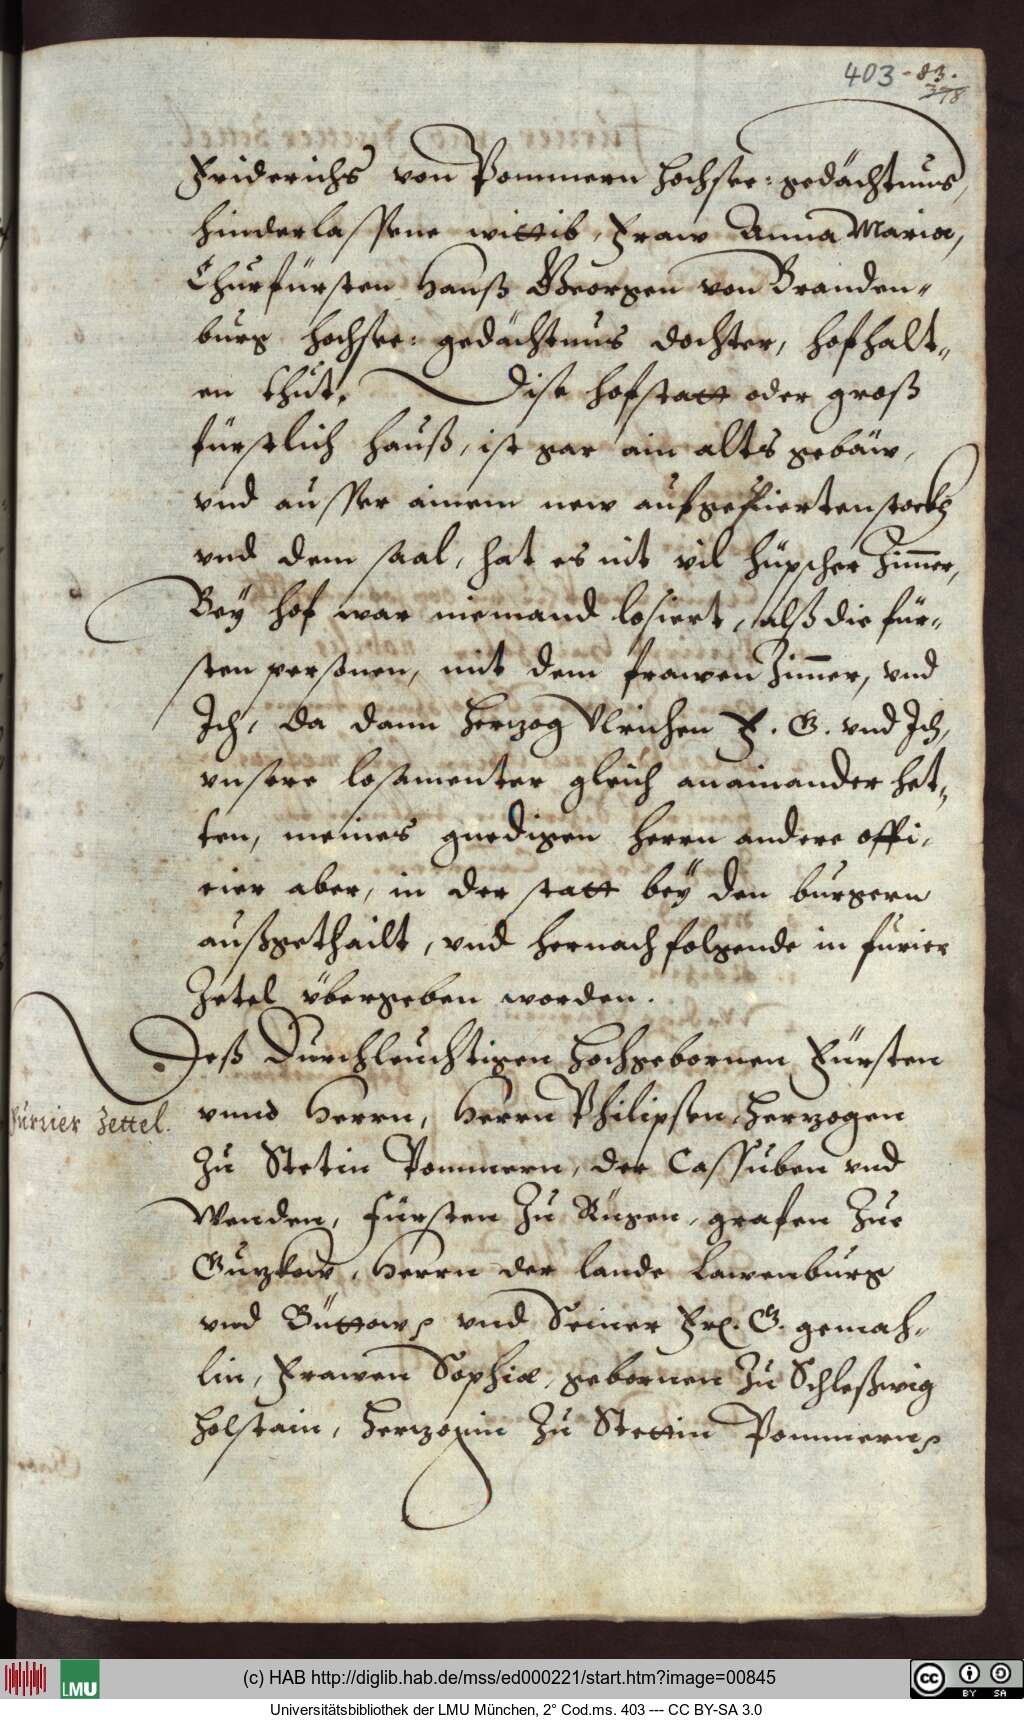 403-83.
378
Friderichs von Pommern hochsee: gedächtnus,
hinderlassene wittib, Fraw Anna Maria,
Churfürsten Hanß Georgen von Branden-
burg hochsee: gedächtnus dochter, hofhalt-
en thut. Dise hofstatt oder groß
fürstlich hauß, ist gar ain alts gebäw,
vnd ausser ainem new aufgefüerten stockh
vnd dem saal, hat es nit vil hüpscher Zimer,
Bey hof war niemand losiert, alß die für-
sten personen, mit dem frawen Zimer, vnd
Ich, da dann Herzog Vlrichen F. G. vnd Ich,
vnsere losamenter gleich anainander het-
ten, meines gnedigen herrn andere offi-
cier aber, in der statt bey den burgern
außgethailt, vnd hernach folgende in furier
Zetel übergeben worden.
Deß Durchleuchtigen Hochgebornen Fürsten
vnnd Herrn, Herrn Philipsen, Herzogen
Furier Zettel.
Zu Stetin Pommern, der Cassuben vnd
Wenden, Fürsten Zu Rügen, grafen Zue
Gutzkow, Herrn der lande Lawenburg
vnd Büttow, vnd Seiner Frl. G. gemah-
lin, Frawen Sophia, gebornen Zu Schleßwig
Holstain, Herzogin Zu Stettin Pommern,
(c) HAB http://diglib.hab.de/mss/ed000221/start.htm?image=00845
LMU
BY SA
Universitätsbibliothek der LMU München, 2° Cod.ms. 403 --- CC BY-SA 3.0